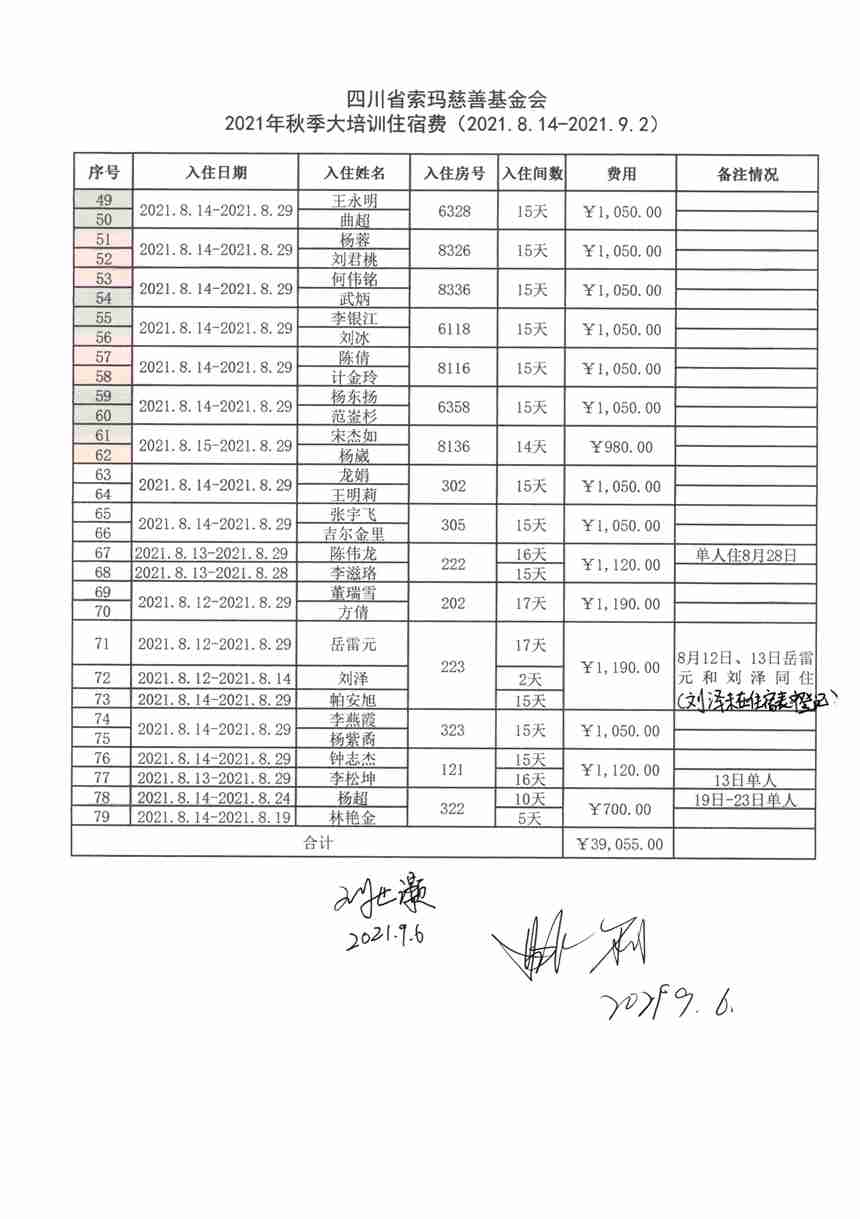 四川省索玛慈善基金会
2021年秋季大培训住宿费（2021.8.14-2021.9.2）
序号 入住日期 入住姓名 入住房号 入住间数 费用 备注情况
49 2021.8.14-2021.8.29 王永明 6328 15天 ¥1,050.00
50 曲超
51 2021.8.14-2021.8.29 杨蓉 8326 15天 ¥1,050.00
52 刘君桃
53 2021.8.14-2021.8.29 何伟铭 8336 15天 ¥1,050.00
54 武炳
55 2021.8.14-2021.8.29 李银江 6118 15天 ¥1,050.00
56 刘冰
57 2021.8.14-2021.8.29 陈倩 8116 15天 ¥1,050.00
58 计金玲
59 2021.8.14-2021.8.29 杨东扬 6358 15天 ¥1,050.00
60 范崟杉
61 2021.8.15-2021.8.29 宋杰如 8136 14天 ¥980.00
62 杨崴
63 2021.8.14-2021.8.29 龙娟 302 15天 ¥1,050.00
64 王明莉
65 2021.8.14-2021.8.29 张宇飞 305 15天 ¥1,050.00
66 吉尔金里
67 2021.8.13-2021.8.29 陈伟龙 222 16天 ¥1,120.00 单人住8月28日
68 2021.8.13-2021.8.28 李滋珞 15天
69 2021.8.12-2021.8.29 董瑞雪 202 17天 ¥1,190.00
70 方倩
71 2021.8.12-2021.8.29 岳雷元 223 17天 ¥1,190.00 8月12日、13日岳雷
72 2021.8.12-2021.8.14 刘泽 2天 元和刘泽同住
73 2021.8.14-2021.8.29 帕安旭 15天 (刘泽未在住宿表中登记)
74 2021.8.14-2021.8.29 李燕霞 323 15天 ¥1,050.00
75 杨紫矞
76 2021.8.14-2021.8.29 钟志杰 121 15天 ¥1,120.00
77 2021.8.13-2021.8.29 李松坤 16天 13日单人
78 2021.8.14-2021.8.24 杨超 322 10天 ¥700.00 19日-23日单人
79 2021.8.14-2021.8.19 林艳金 5天
合计 ¥39,055.00
2021.9.6